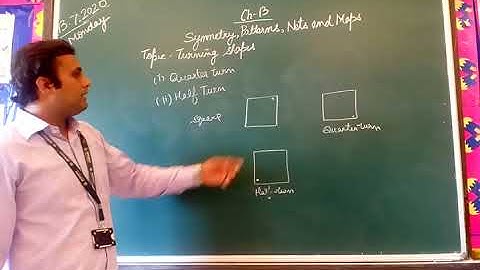 13.7.2020
Monday
Ch-13
Symmetry, Patterns, Nets and Maps
Topic - Turning Shapes
(i) Quarter turn
(ii) Half Turn
Square
Quarter turn
Half-turn